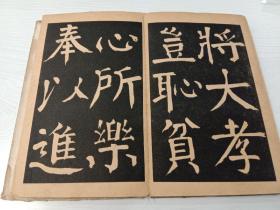 將大孝
豈恥貧
心所樂
奉以進